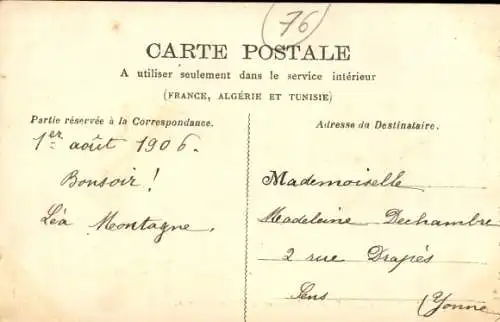 (76)
CARTE POSTALE
A utiliser seulement dans le service intérieur
(FRANCE, ALGÉRIE ET TUNISIE)
Partie réservée à la Correspondance.
1er août 1906.
Bonsoir!
Léa Montagne.
Adresse du Destinataire.
Mademoiselle
Madeleine Dechambre
2 rue Drapés
Sens
(Yonne)